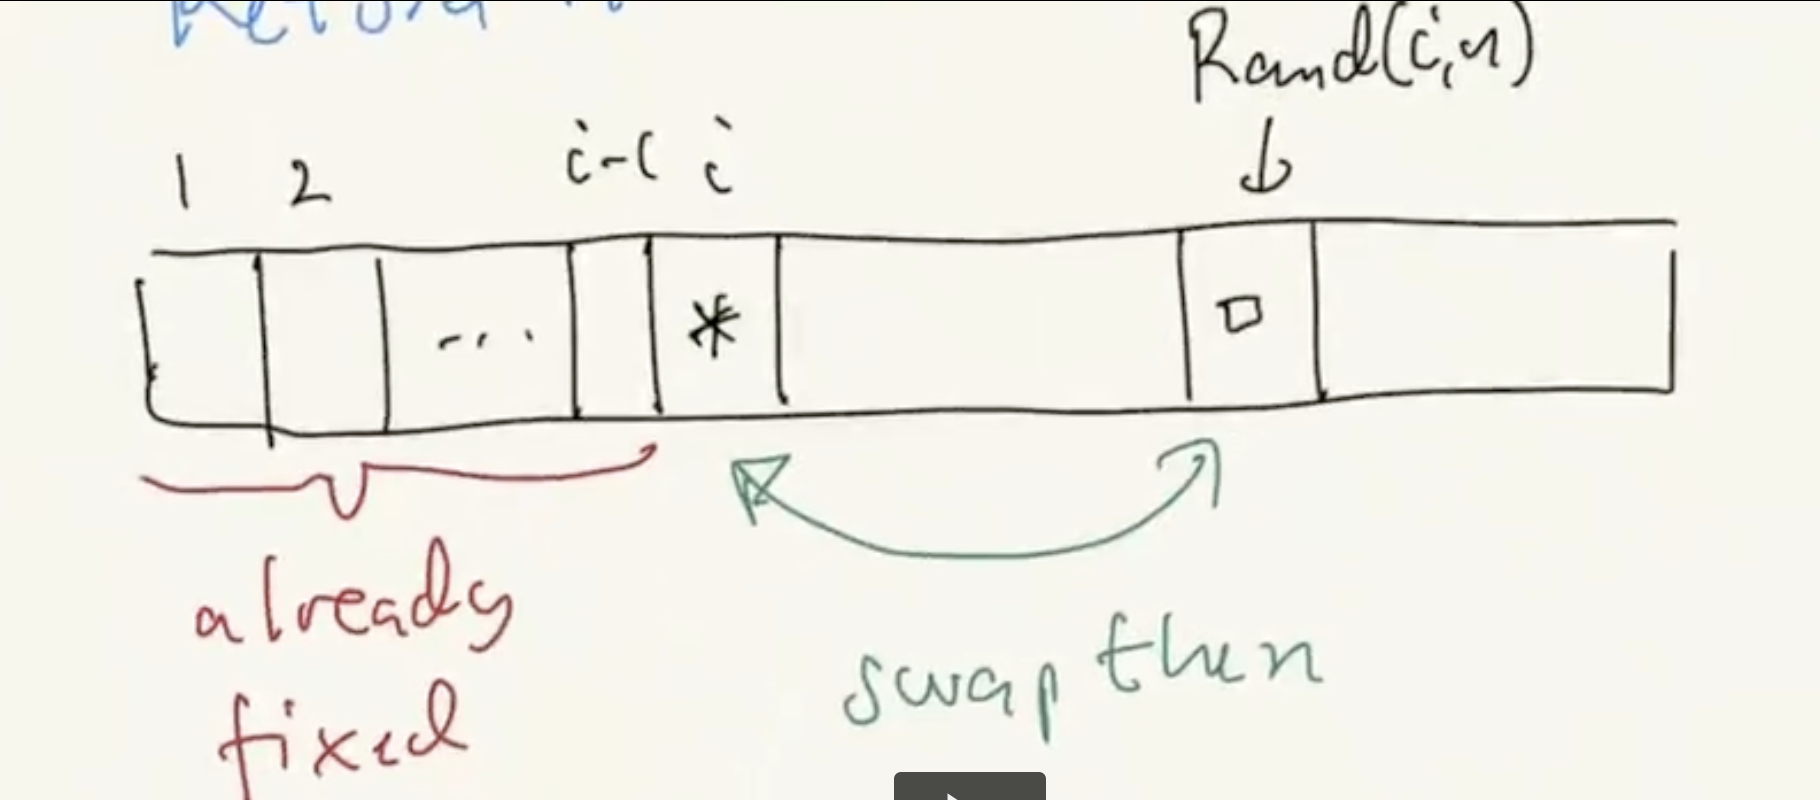 Return A
Rand(i,n)
1 2 i-1 i
...
*
already
fixed
swap then